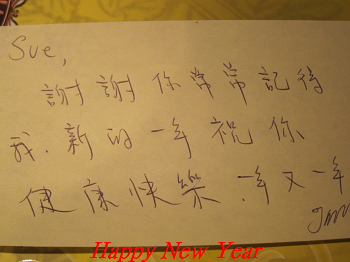 Sue,
謝謝你常常記得
我.新的一年祝你
健康快樂.一年又一年
Happy New Year